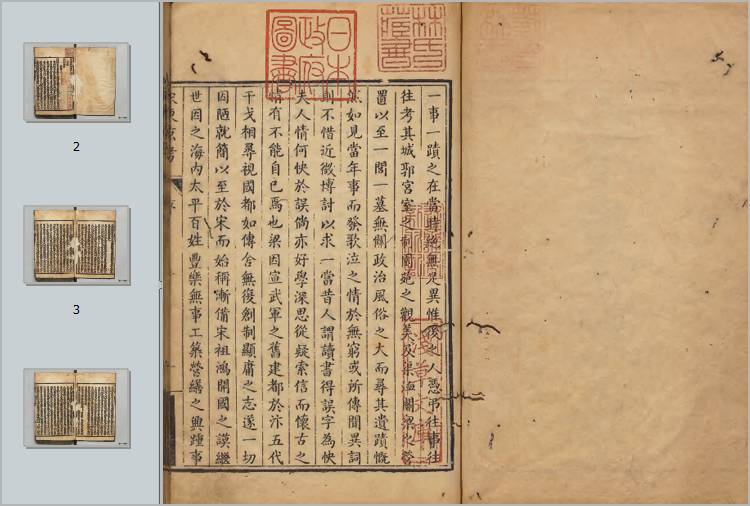 日本
政府
圖書
林氏
藏書
一事一蹟之在當時絶無足異惟後之人憑弔徃事徃
徃考其城郭宮室之制園苑之觀美及渠關梁之營
置以至一閣一墓無關政治風俗之大而尋其遺蹟慨
然如見當年事而發歌泣之情於無窮或所傳聞異詞
則不惜近徵博討以求一當昔人謂讀書得誤字為快
夫人情何快於誤倘亦好學深思從疑索信而懷古之
情有不能自已焉也梁因宣武軍之舊建都於汴五代
干戈相尋視國都如傳舍無復創制顯庸之志遂一切
因陋就簡以至於宋而始稱漸備宋祖鴻開國之謨繼
世因之海內太平百姓豐樂無事工築營繕之興踵事
2
3